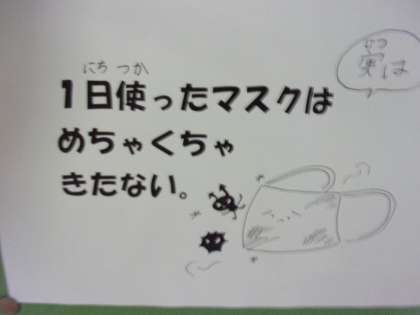 実は
にち つか
1日使ったマスクは
めちゃくちゃ
きたない。